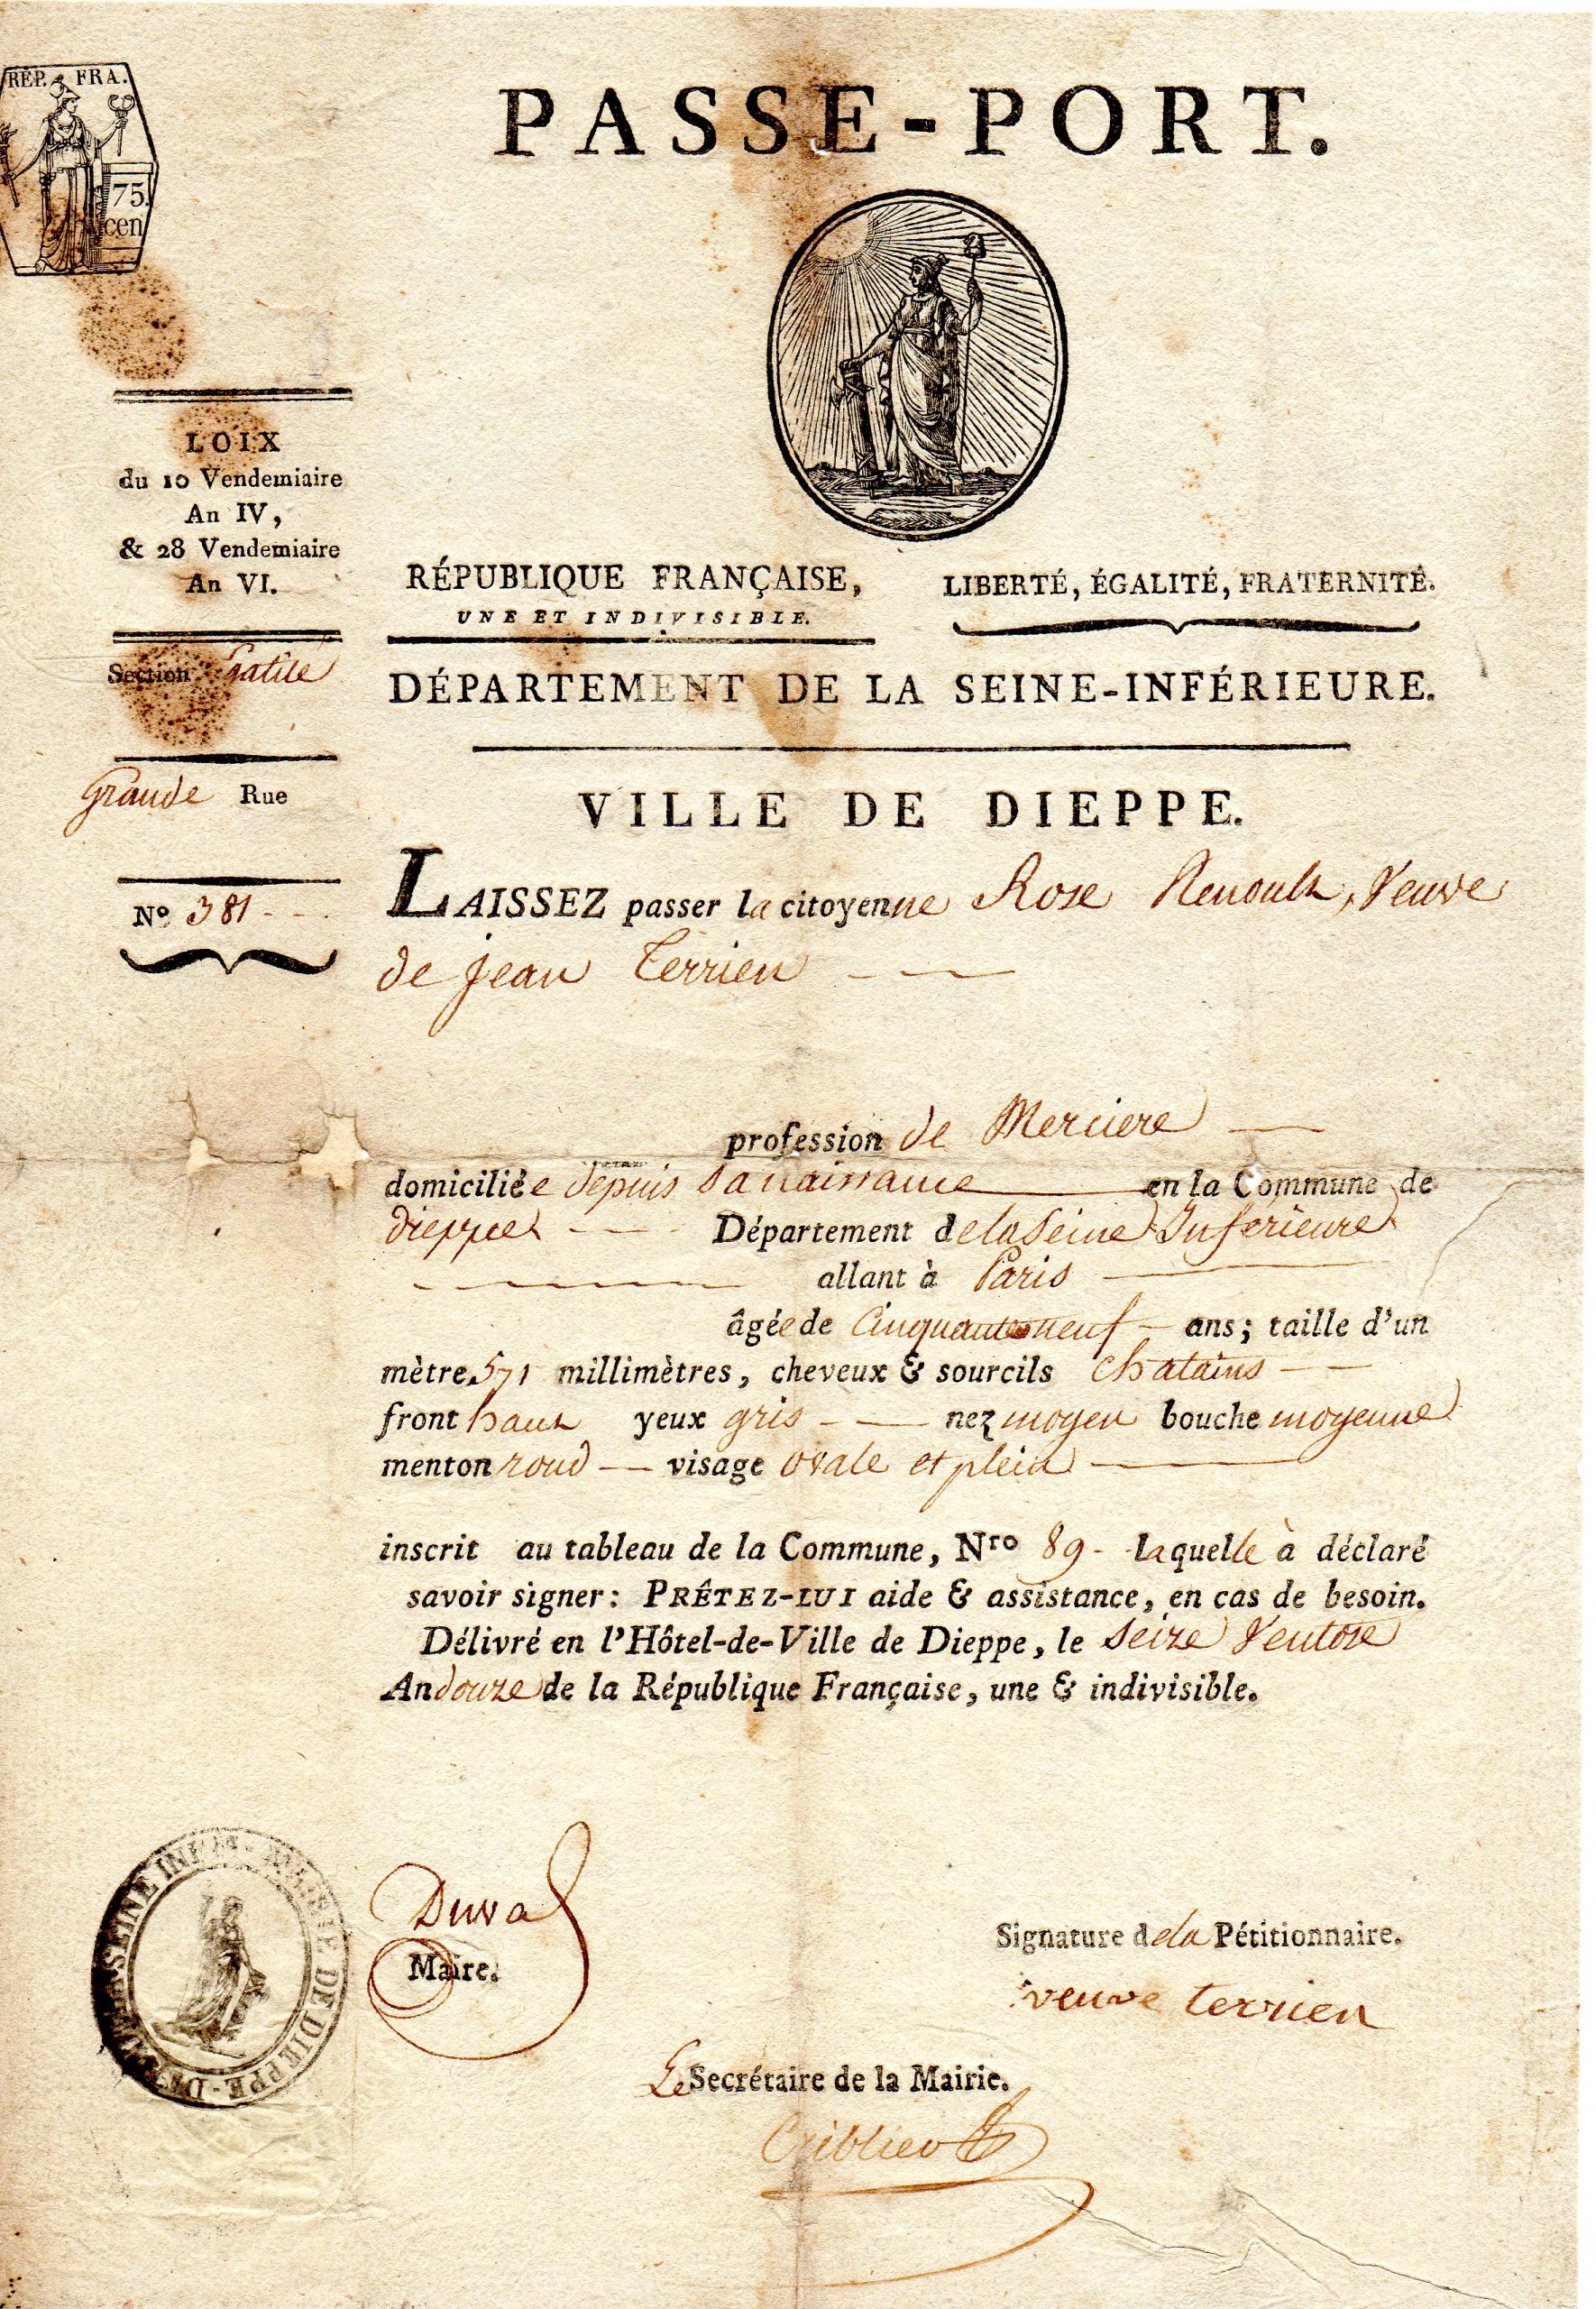 RÉP. FRA.
75.
cen
PASSE-PORT.
LOIX
du 10 Vendemiaire
An IV,
& 28 Vendemiaire
An VI.
RÉPUBLIQUE FRANÇAISE,
UNE ET INDIVISIBLE.
LIBERTÉ, ÉGALITÉ, FRATERNITÉ.
Section Egalité
DÉPARTEMENT DE LA SEINE-INFÉRIEURE.
Grande Rue
VILLE DE DIEPPE.
No 381
LAISSEZ passer la citoyenne Rose Renoult, Veuve
de jean Terrien
profession de Merciere
domiciliée depuis sa naissance en la Commune de
dieppe Département de la Seine Inferieure
allant à Paris
âgée de Cinquante neuf ans ; taille d'un
mètre 571 millimètres, cheveux & sourcils Chatains
front haut yeux gris nez moyen bouche moyenne
menton rond visage ovale et plein
inscrit au tableau de la Commune, Nro 89 - Laquelle à déclaré
savoir signer : PRÊTEZ-LUI aide & assistance, en cas de besoin.
Délivré en l'Hôtel-de-Ville de Dieppe, le Seize Ventose
An douze de la République Française, une & indivisible.
SEINE INF MAIRIE DE DIEPPE
Duval
Maire.
Signature de la Pétitionnaire.
veuve terrien
Le Secrétaire de la Mairie.